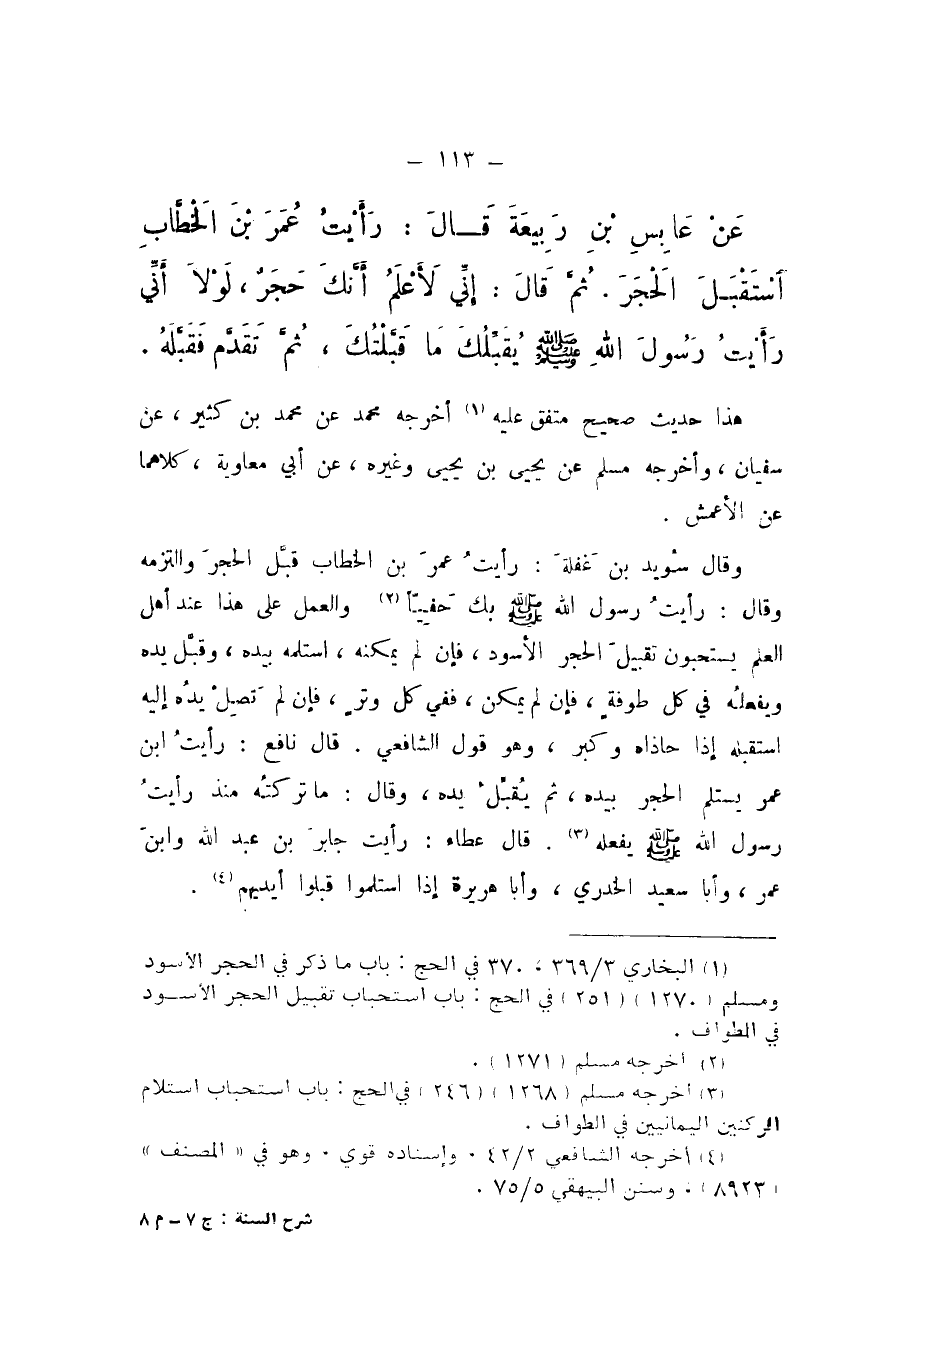 – ١١٣ –
عَنْ عَابِسِ بْنِ رَبِيعَةَ قَـــالَ : رَأَيْتُ عُمَرَ بْنَ الَخْطَّابِ
اَسْتَقْبَـلَ الَحْجَرَ . ثُمَّ قَالَ : إِنِّي لَأَعْلَمُ أَنَّكَ حَجَرٌ ، لَوْلَا أَنِّي
رَأَيْتُ رَسُولَ اللهِ ﷺ يُقَبِّلُكَ مَا قَبَّلْتُكَ ، ثُمَّ تَقَدَّمَ فَقَبَّلَهُ .
هذا حديث صحيح متفق عليه (١) أخرجه محمد عن محمد بن كثير ، عن
سفيان ، وأخرجه مسلم عن يحيى بن يحيى وغيره ، عن أبي معاوية ، كلاهما
عن الأعمش .
وقال سُويد بن غَفلة َ : رأيتُ عمرَ بن الخطاب قبَّل الحجرَ والتزمه
وقال : رأيتُ رسول الله ﷺ بك حَفيـّاً (٢) والعمل على هذا عند أهل
العلم يستحبون تقبيلَ الحجر الأسود ، فإن لم يمكنه ، استلمه بيده ، وقبَّل يده
ويفعلُه في كل طوفةٍ ، فإن لم يمكن ، ففي كل وترٍ ، فإن لم تَصِلْ يدُه إليه
استقبله إذا حاذاه وكبر ، وهو قول الشافعي . قال نافع : رأيتُ ابن
عمر يستلم الحجر بيده ، ثم يُقبِّلُ يده ، وقال : ما تركتُه منذ رأيتُ
رسول الله ﷺ يفعله (٣) . قال عطاء : رأيت جابرَ بن عبد الله وابنَ
عمر ، وأبا سعيد الخدري ، وأبا هريرة إذا استلموا قبلوا أيديهم (٤) .
(١) البخاري ٣٦٩/٣ ، ٣٧٠ في الحج : باب ما ذكر في الحجر الأسود
ومسلم ( ١٢٧٠ ) ( ٢٥١ ) في الحج : باب استحباب تقبيل الحجر الأسـود
في الطواف .
(٢) أخرجه مسلم ( ١٢٧١ ) .
(٣) أخرجه مسلم ( ١٢٦٨ ) ( ٢٤٦ ) في الحج : باب استحباب استلام
الركنين اليمانيين في الطواف .
(٤) أخرجه الشافعي ٤٢/٢ . وإسناده قوي . وهو في « المصنف »
( ٨٩٢٣ ) . وسنن البيهقي ٧٥/٥ .
شرح السنة : ج ٧ – م ٨